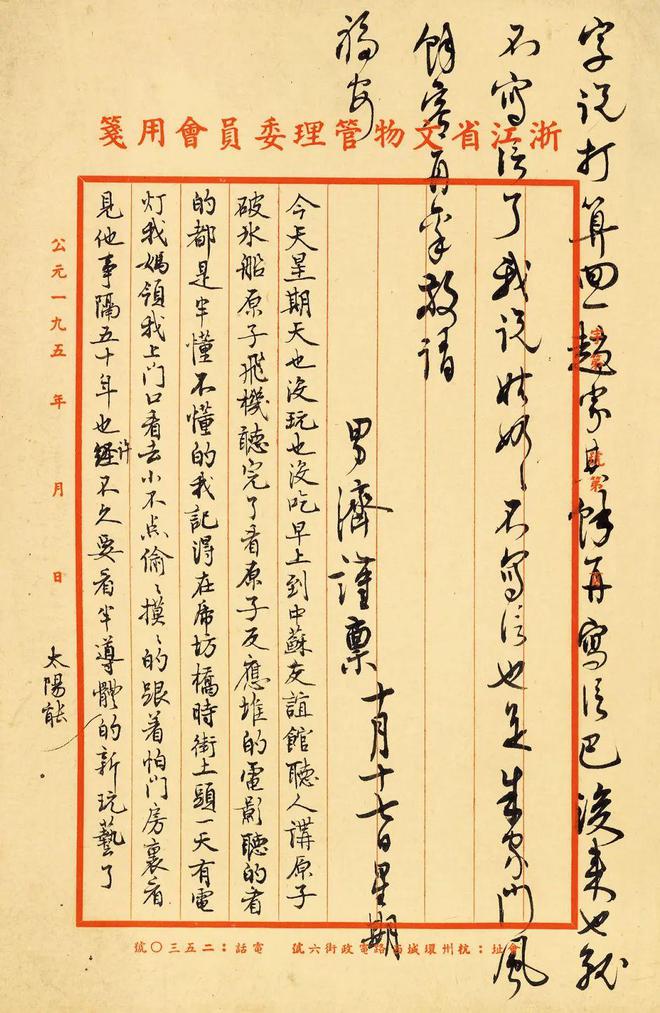 浙江省文物管理委員會用箋
字说打算回趟家其馀再寫信巴後来也就
不寫信了我说姑奶々不寫信也是朱家门風
馀容再禀敬请
福安
男濟謹禀 十月十七日星期
今天星期天也没玩也没吃早上到中蘇友誼館聽人講原子
破氷船原子飛機聽完了看原子反應堆的電影聽的看
的都是半懂不懂的我記得在席坊橋時街上頭一天有電
灯我媽領我上門口看去小不点偷々摸々的跟着怕門房裏看
見他事隔五十年也許經不久要看半導體的新玩藝了
太陽能
公元一九五 年 月 日
會址：杭州環城西路電政街六號 電話：二五三〇號